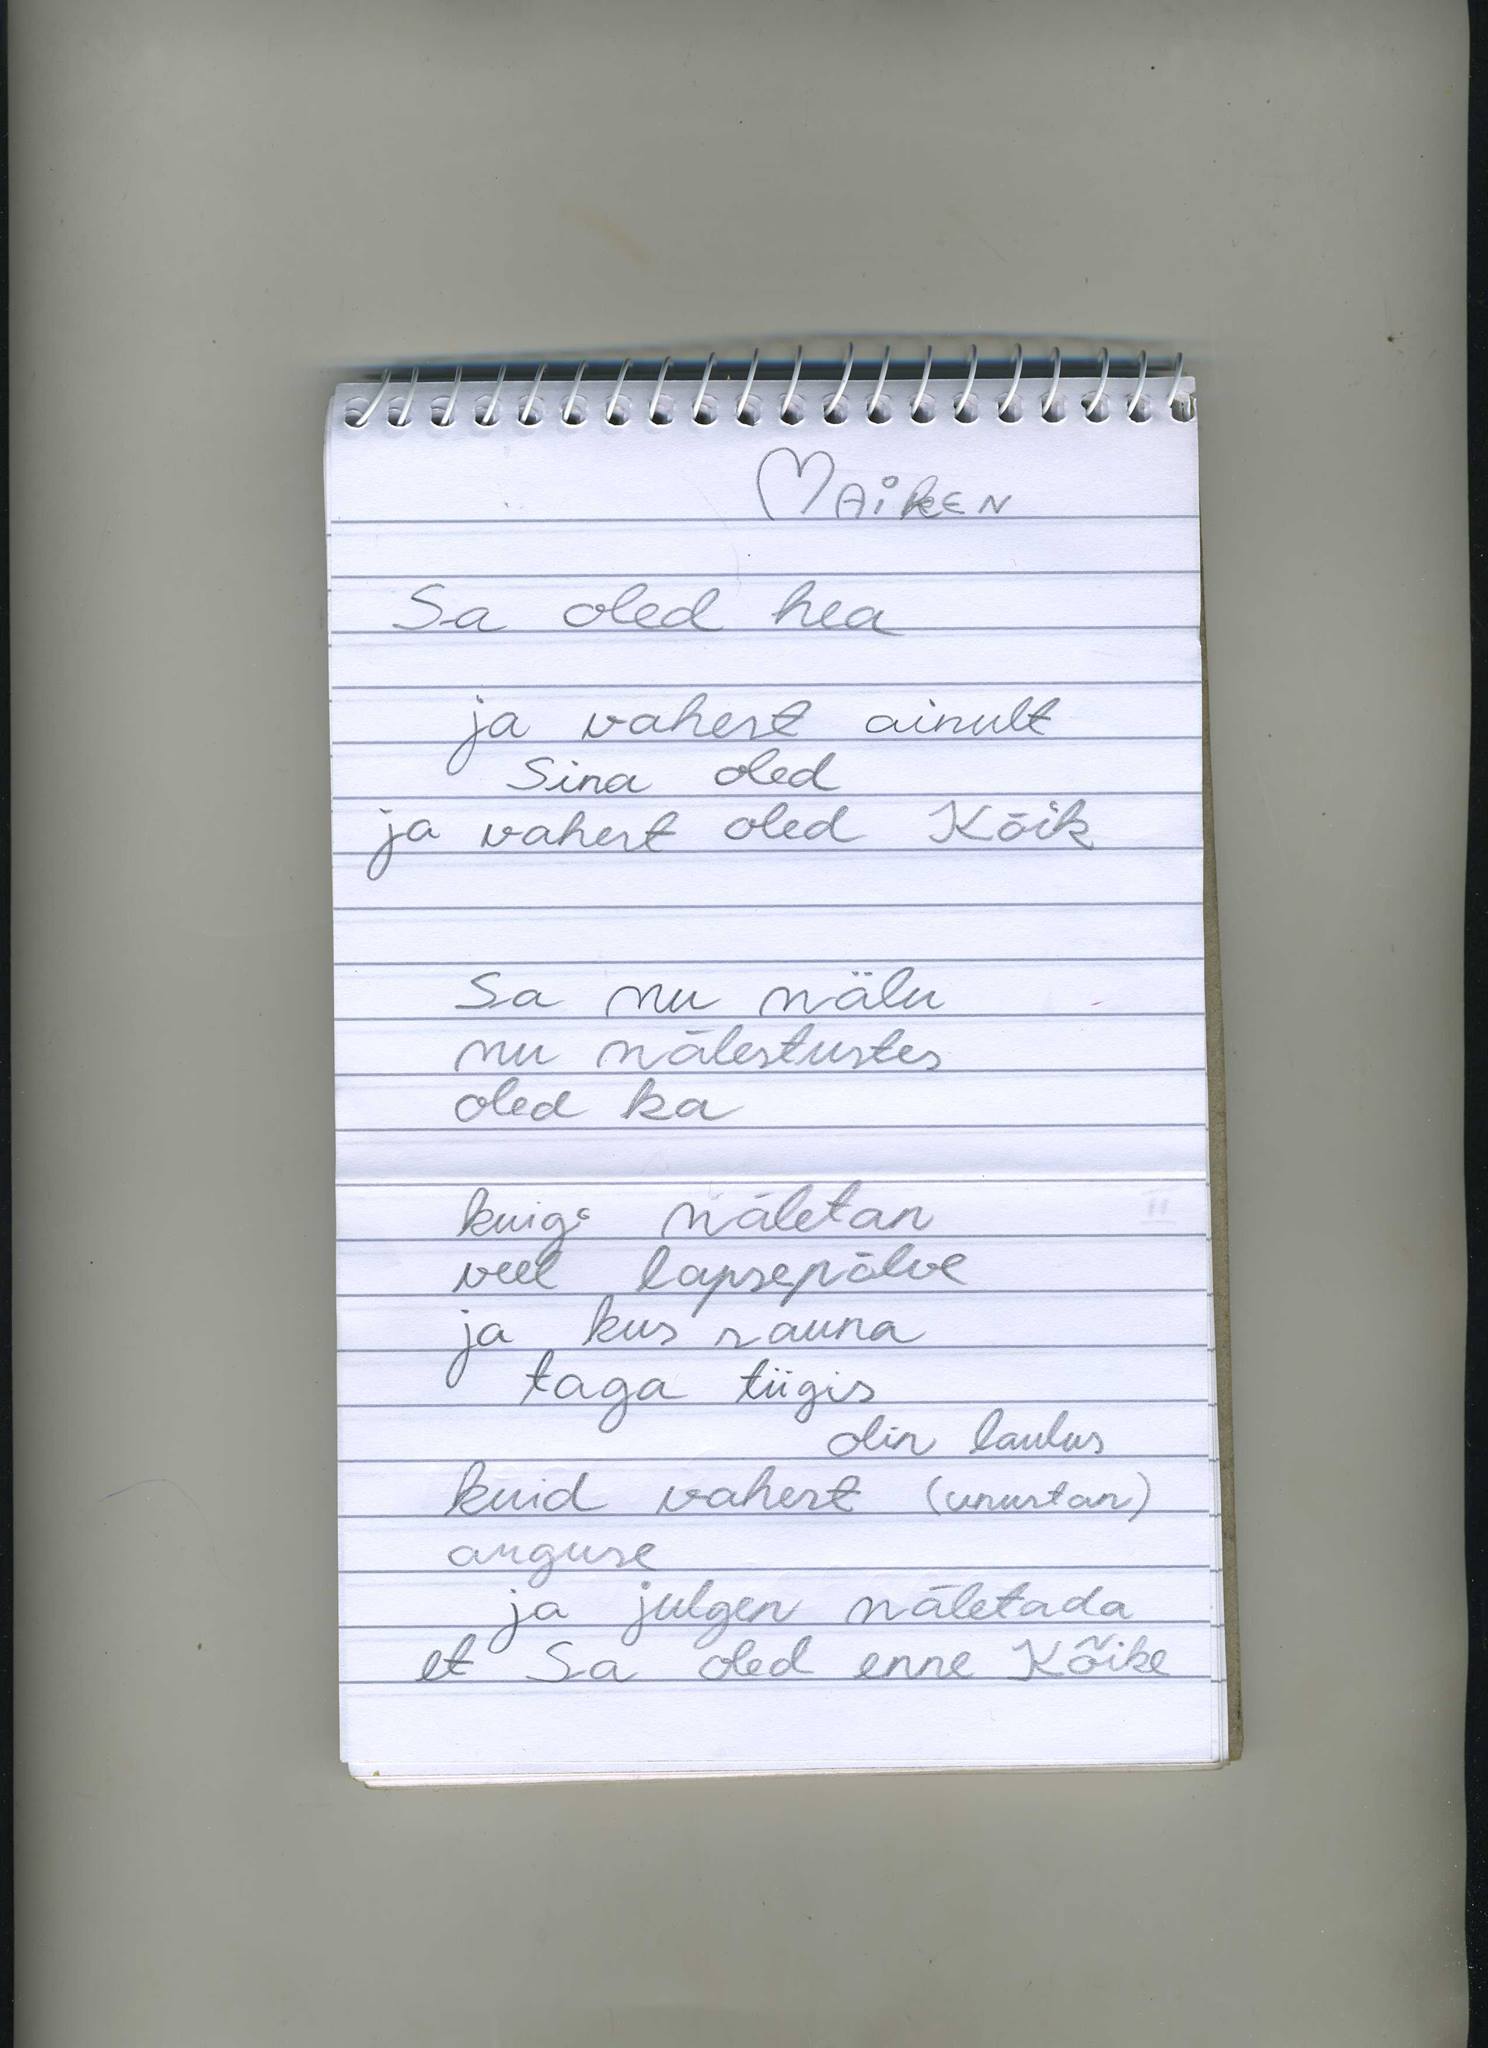 MAiKEN
Sa oled hea
ja vahest ainult
Sina oled
ja vahest oled Kõik
Sa mu mälu
mu mälestustes
oled ka
kuigi mäletan
veel lapsepõlve
ja kus sauna
taga tiigis
olin laulus
kuid vahest (unustan)
arguse
ja julgen mäletada
et Sa oled enne Kõike